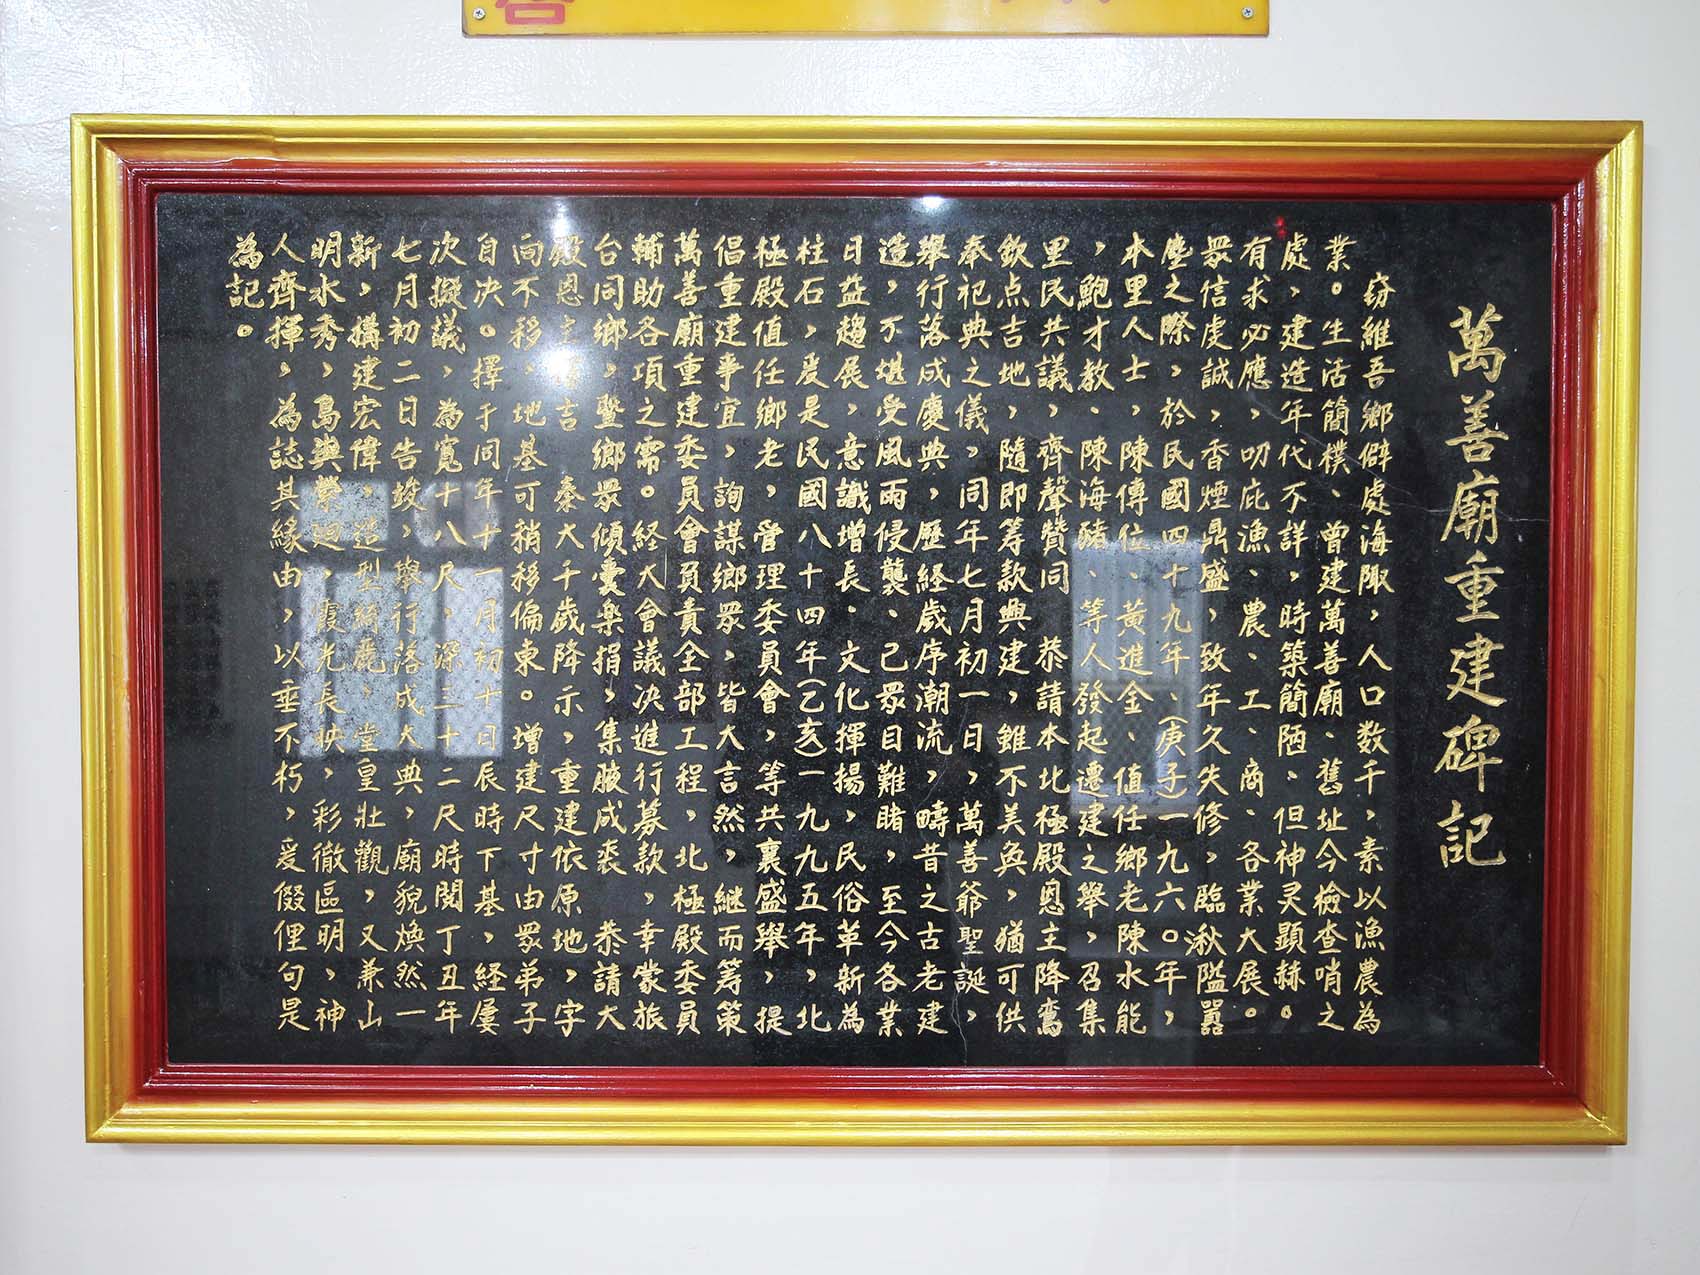 萬善廟重建碑記
紡維吾鄉僻處海陬，人口数千，素以漁農為
業。生活簡樸、曾建萬善廟、舊址今檢查哨之
處，建造年代不詳，時築簡陋、但神灵顯赫。
有求必應，叨庇漁、農、工、商、各業大展。
眾信虔誠，香煙鼎盛，致年久失修，臨湫隘囂
塵之際，於民國四十九年、(庚子)一九六〇年，
本里人士，陳傳位、黃進金、值任鄉老陳水能
，鮑才教、陳海豬、等人發起遷建之舉，召集
里民共議，齊聲贊同　恭請本北極殿恩主降鸞
欽点吉地，隨即筹款興建，雖不美奐，猶可供
奉祀典之儀，同年七月初一日，萬善爺聖誕，
舉行落成慶典，歷経歲序潮流，疇昔之古老建
造，不堪受風雨侵襲、己眾目難睹，至今各業
日益趨展，意識增長、文化揮揚，民俗革新為
柱石，爰是民國八十四年(乙亥)一九九五年，北
極殿值任鄉老，管理委員會，等共襄盛舉，提
倡重建事宜，詢謀鄉眾，皆大言然，継而筹策
萬善廟重建委員會員責全部工程，北極殿委員
輔助各項之需。経大會議決進行募款，幸蒙旅
台同鄉，暨鄉眾傾囊樂捐，集腋成裘　恭請大
殿恩主言　秦大千歲降示，重建依原地，字
向不移、地基可稍移偏東。增建尺寸由眾弟子
自决。擇于同年十一月初十日辰時下基，経屢
次擬議，為寬十八尺，深三十二尺時閱丁丑年
七月初二日告竣，舉行落成大典，廟貌煥然一
新，構建宏偉，造型綺麗，堂皇壯觀，又兼山
明水秀，島與縈迴，霞光長映，彩徹區明，神
人齊揮，為誌其緣由，以垂不朽，爰假俚句是
為記。